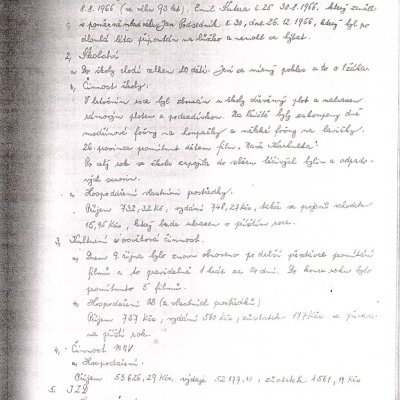 8.8.1966 (ve věku 90 let), Emil Kučera č. 25 30.8.1966, který zemřel
v poměrně mladém věku Jan Pospíchal č. 30, dne 26.12.1966, který byl po
dlouhá léta připoután na lůžko a nemohl se hýbat.
2, Školství
a, Do školy chodí celkem 20 dětí. Jeví se mírný pokles a to o 1 žáka.
b, Činnost školy:
V letošním roce byl zbourán u školy dřevěný plot a nahrazen
rámovým plotem a podezdívkou. Na hřiště byly zakoupeny dvě
na houpačky a na lavičky.
26. prosince promítnut dětem film
Po celý rok se škola zapojila do sběru léčivých bylin a odpadových
surovin.
c, Hospodaření vlastními prostředky.
Příjem 732,32 Kčs, vydání 748,27 Kčs, takže se projevil schodek
15,95 Kčs, který bude uhrazen v příštím roce.
3, Kulturní a osvětová činnost.
a, Dnem 9. října bylo znovu obnoveno po delší přestávce promítání
filmů a to pravidelně 1 krát za 14 dní. Do konce roku bylo
promítnuto 5 filmů.
b, Hospodaření OB (z vlastních prostředků)
Příjem 737 Kčs, vydání 560 Kčs, zůstatek 177 Kčs se převede
na příští rok.
4, Činnost MNV
a, Hospodaření.
Příjem 53.626,29 Kčs, výdaje 52.177,10, zůstatek 1.561,19 Kčs
5. JZD